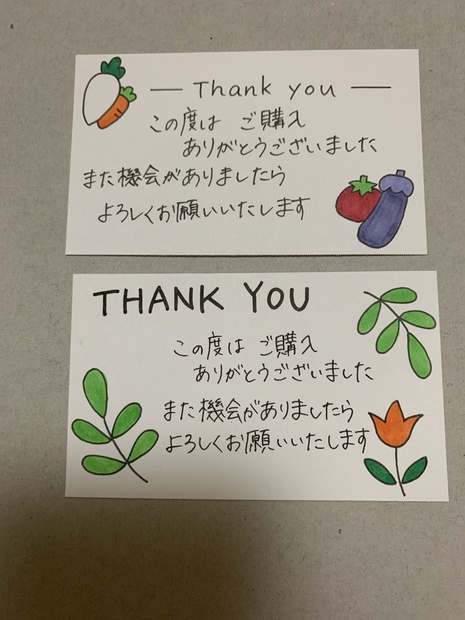 Thank you
この度は ご購入
ありがとうございました
また機会がありましたら
よろしくお願いいたします
THANK YOU
この度は ご購入
ありがとうございました
また機会がありましたら
よろしくお願いいたします